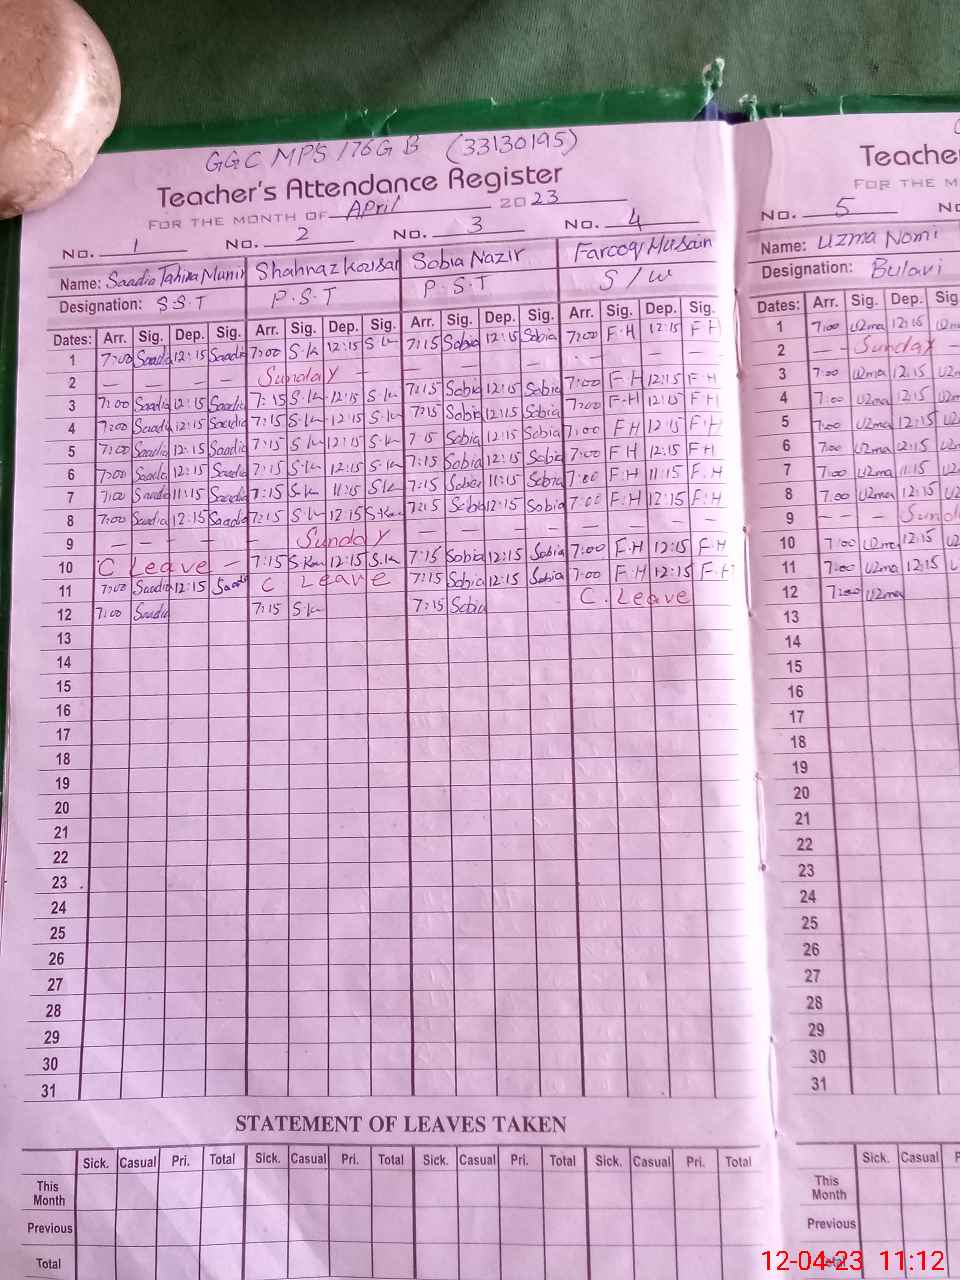 GGC MPS 176 GB (33130195)
Teacher's Attendance Register
FOR THE MONTH OF April 2023
No. 1 No. 2 No. 3 No. 4
Name: Saadia Tahira Munir Shahnaz Kousar Sobia Nazir Farooq Husain
Designation: S.S.T P.S.T P.S.T S/W
Dates: Arr. Sig. Dep. Sig. Arr. Sig. Dep. Sig. Arr. Sig. Dep. Sig. Arr. Sig. Dep. Sig.
1 7:00 Saadia 12:15 Saadia 7:00 S.K 12:15 S.K 7:15 Sobia 12:15 Sobia 7:00 F.H 12:15 F.H
2 — — — — Sunday — — — — — — — — —
3 7:00 Saadia 12:15 Saadia 7:15 S.K 12:15 S.K 7:15 Sobia 12:15 Sobia 7:00 F.H 12:15 F.H
4 7:00 Saadia 12:15 Saadia 7:15 S.K 12:15 S.K 7:15 Sobia 12:15 Sobia 7:00 F.H 12:15 F.H
5 7:00 Saadia 12:15 Saadia 7:15 S.K 12:15 S.K 7:15 Sobia 12:15 Sobia 7:00 F.H 12:15 F.H
6 7:00 Saadia 12:15 Saadia 7:15 S.K 12:15 S.K 7:15 Sobia 12:15 Sobia 7:00 F.H 12:15 F.H
7 7:00 Saadia 11:15 Saadia 7:15 S.K 11:15 S.K 7:15 Sobia 11:15 Sobia 7:00 F.H 11:15 F.H
8 7:00 Saadia 12:15 Saadia 7:15 S.K 12:15 S.K 7:15 Sobia 12:15 Sobia 7:00 F.H 12:15 F.H
9 — — — — — Sunday — — — — — — — —
10 C Leave — 7:15 S.K 12:15 S.K 7:15 Sobia 12:15 Sobia 7:00 F.H 12:15 F.H
11 7:00 Saadia 12:15 Saadia C Leave 7:15 Sobia 12:15 Sobia 7:00 F.H 12:15 F.H
12 7:00 Saadia 7:15 S.K 7:15 Sobia C. Leave
13
14
15
16
17
18
19
20
21
22
23
24
25
26
27
28
29
30
31
STATEMENT OF LEAVES TAKEN
Sick. Casual Pri. Total Sick. Casual Pri. Total Sick. Casual Pri. Total Sick. Casual Pri. Total
This
Month
Previous
Total
Teache
FOR THE M
No. 5 No
Name: Uzma Nomi
Designation: Bulavi
Dates: Arr. Sig. Dep. Sig
1 7:00 Uzma 12:15 Uzma
2 — — Sunday —
3 7:00 Uzma 12:15 Uzma
4 7:00 Uzma 12:15 Uzma
5 7:00 Uzma 12:15 Uz
6 7:00 Uzma 12:15 Uz
7 7:00 Uzma 11:15 Uz
8 7:00 Uzma 12:15 Uz
9 — — — Sund
10 7:00 Uzma 12:15 Uz
11 7:00 Uzma 12:15 U
12 7:00 Uzma
13
14
15
16
17
18
19
20
21
22
23
24
25
26
27
28
29
30
31
Sick. Casual P
This
Month
Previous
Total
12-04-23 11:12